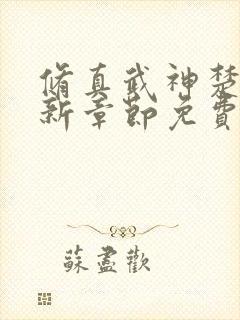 脩真武神楚
新章節免費
蘇盡歡